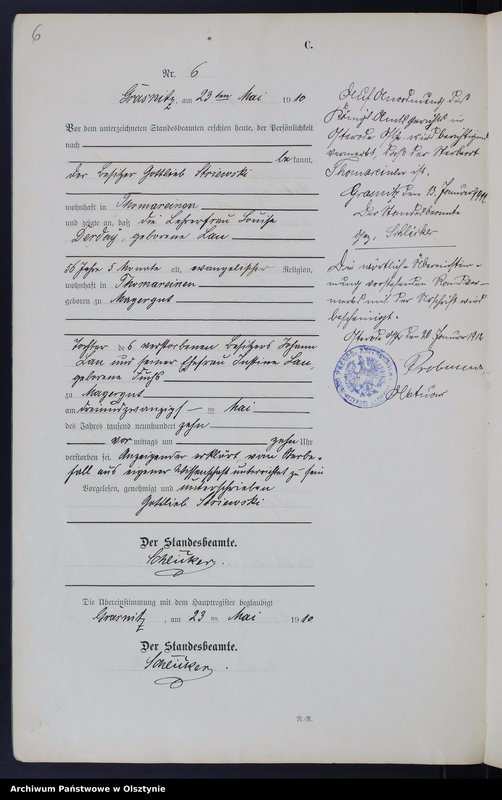 6
C.
Nr. 6
Grasnitz, am 23ten Mai 1910
Vor dem unterzeichneten Standesbeamten erschien heute, der Persönlichkeit
nach
bekannt,
der Besitzer Gottlieb Striewski
wohnhaft in Thomareinen
und zeigte an, daß die Lehrerfrau Louise
Derday, geborene Lau
56 Jahre 5 Monate alt, evangelischer Religion,
wohnhaft in Thomareinen
geboren zu Magergut
Tochter des verstorbenen Besitzers Johann
Lau und seiner Ehefrau Justine Lau,
geborene Fuchs
zu Magergut
am dreiundzwanzigsten Mai
des Jahres tausend neunhundert zehn
vor mittags um zehn Uhr
verstorben sei. Anzeigender erklärt vom Sterbe-
fall aus eigener Wissenschaft unterrichtet zu sein
Vorgelesen, genehmigt und unterschrieben
Gottlieb Striewski
Der Standesbeamte.
Schlicker.
Die Übereinstimmung mit dem Hauptregister beglaubigt
Grasnitz, am 23 ten Mai 1910
Der Standesbeamte.
Schlicker.
N.-R.
Auf Anordnung des
Königl. Amtsgerichts in
Osterode Ostpr. wird berichtigend
vermerkt, daß der Sterbeort
Thomareinen ist.
Grasnitz, den 13. Januar
Der Standesbeamte
gez. Schlicker
Die wörtliche Übereinstim-
mung vorstehenden Randver-
merks mit der Urschrift wird
bescheinigt.
Osterode Ostpr. den 28. Januar 1912
Archiwum Państwowe w Olsztynie